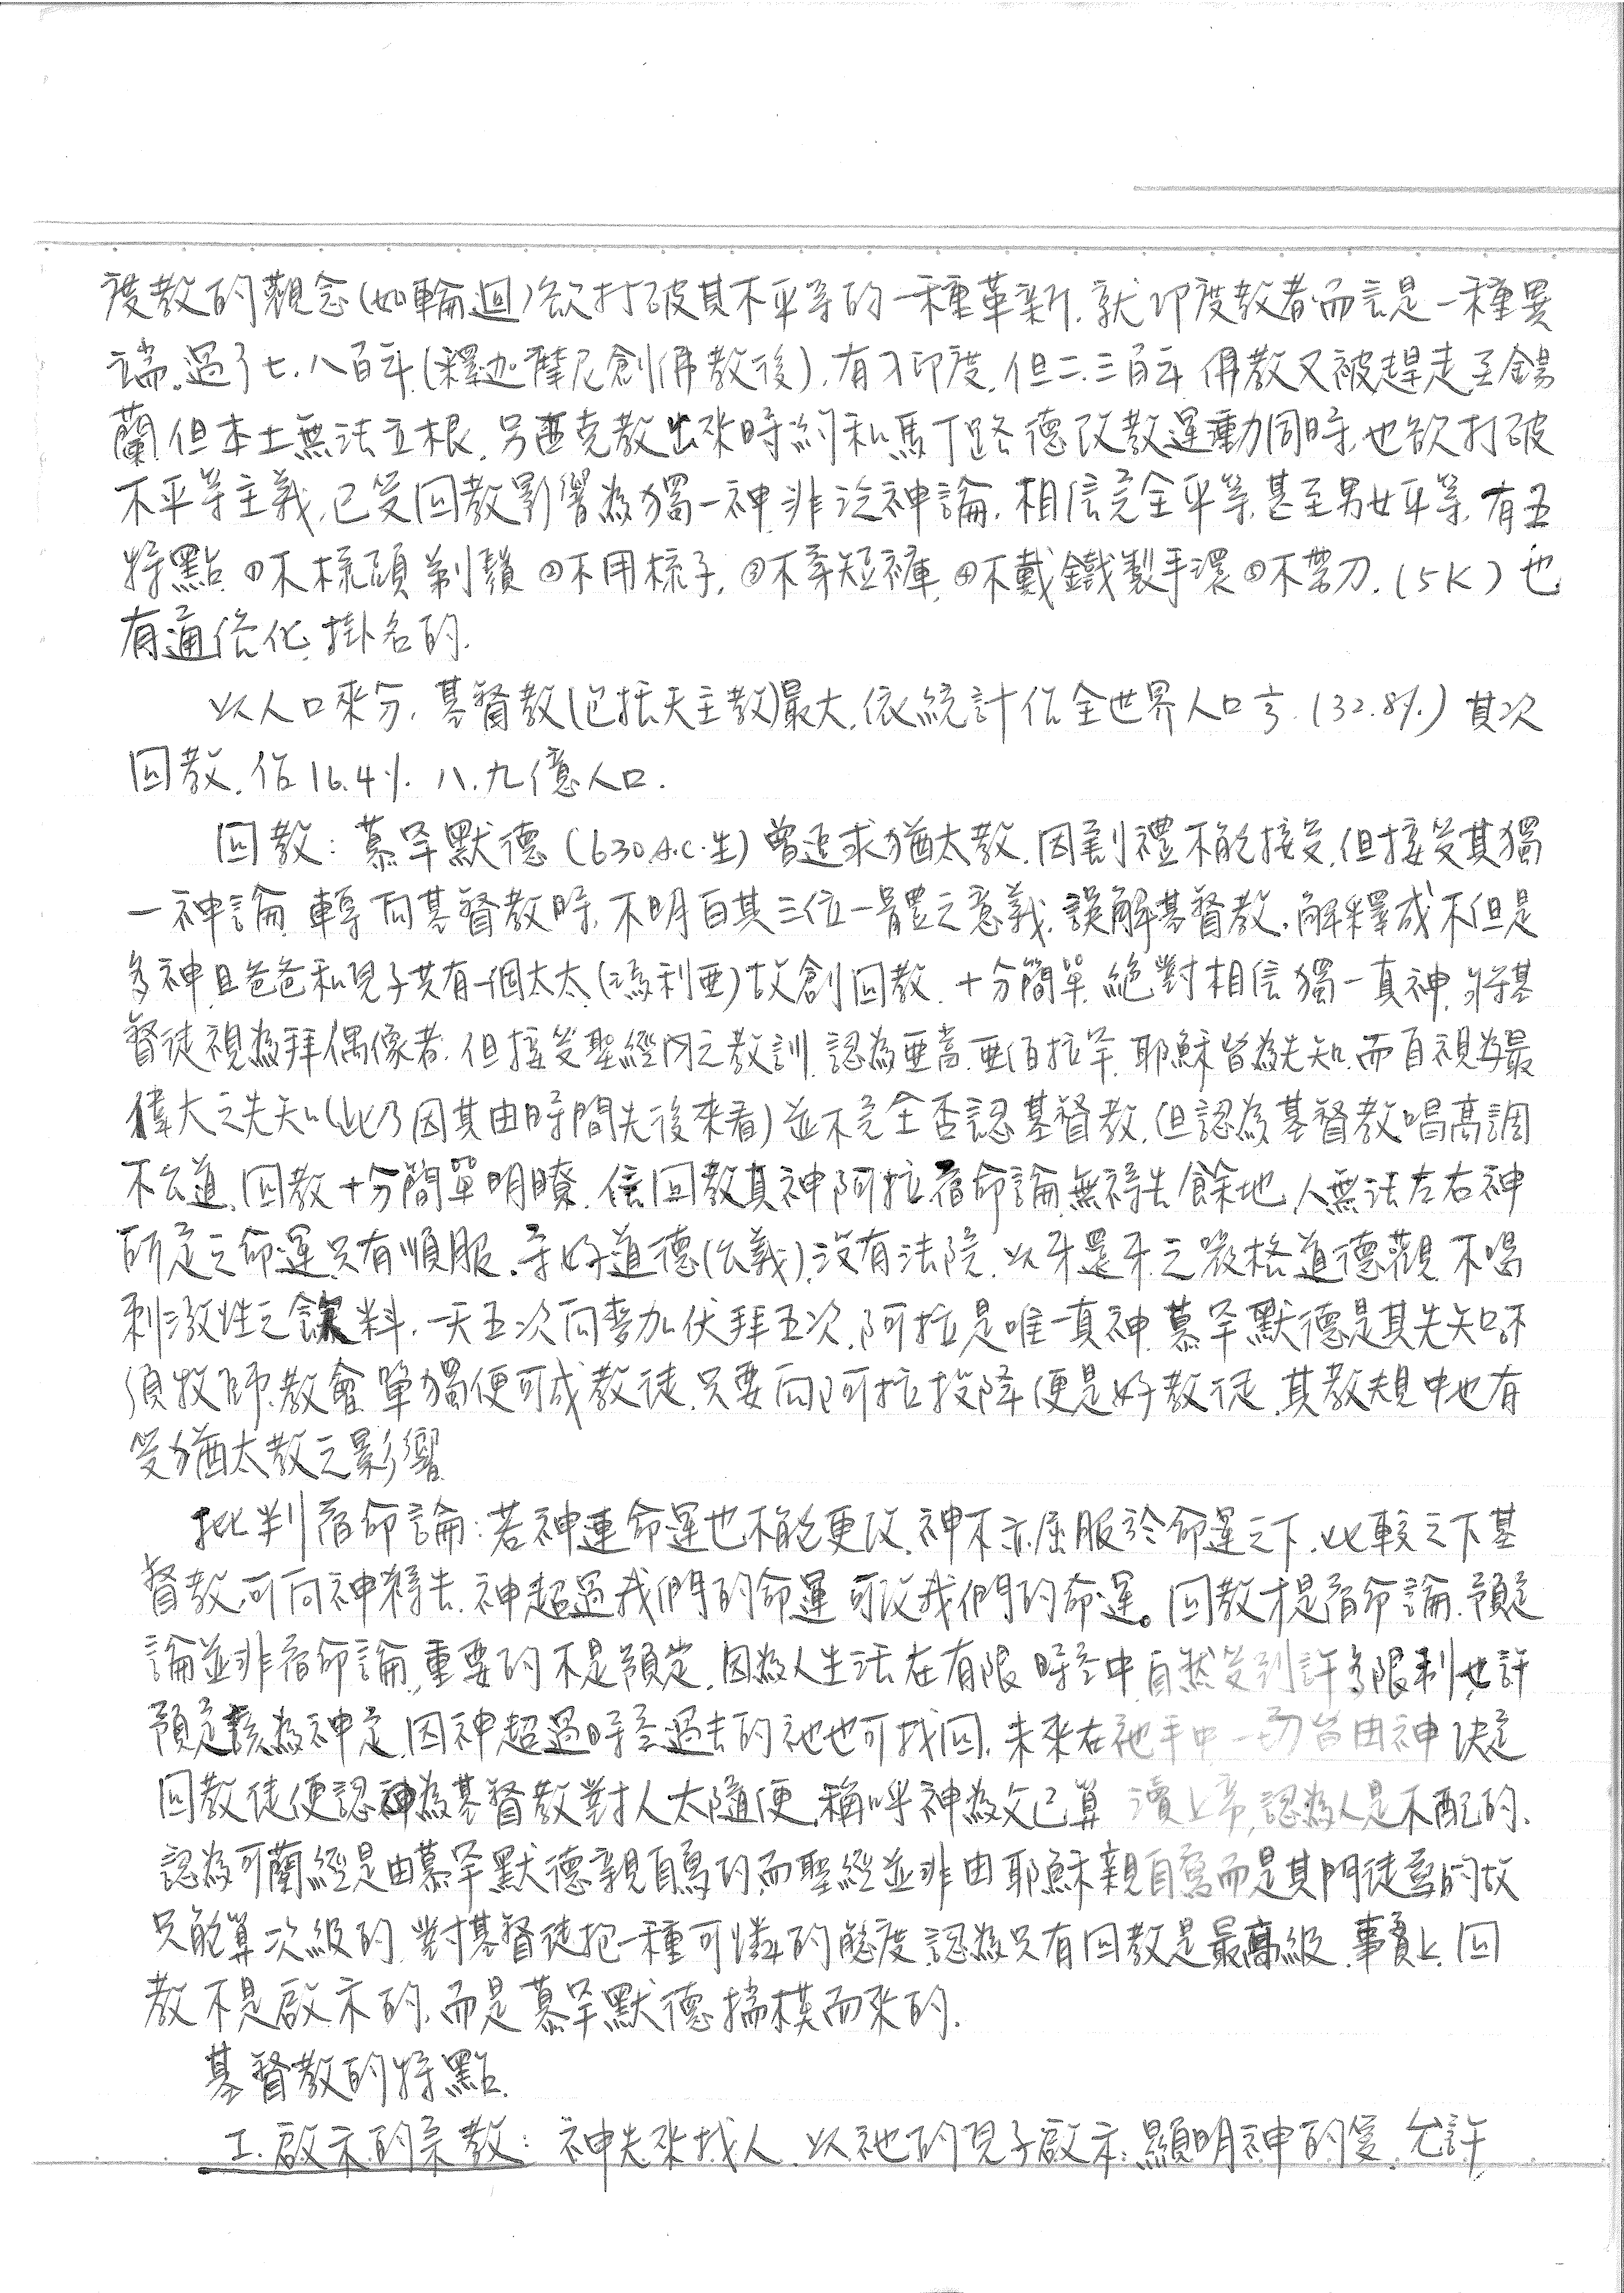 度教的觀念(如輪迴)欲打破其不平等的一種革新.就印度教者而言是一種異
端.過了七.八百年(釋迦摩尼創佛教後).有印度.但二.三百年佛教又被趕走至錫
蘭但本土無法立根.另西克教出來時約和馬丁路德改教運動同時.也欲打破
不平等主義.已受回教影響為獨一神.非泛神論.相信完全平等.甚至男女平等.有五
特點.①不梳頭剃鬚②不用梳子.③不穿短褲.④不戴鐵製手環⑤不帶刀.(5K)也
有通俗化.掛名的.
以人口來分.基督教(包括天主教)最大.依統計佔全世界人口⅓.(32.8%.)其次
回教.佔16.4%.八.九億人口.
回教:慕罕默德(630 A.C.生)曾追求猶太教.因割禮不能接受.但接受其獨
一神論.轉向基督教時.不明白其三位一體之意義.誤解基督教.解釋成不但是
多神且爸爸和兒子共有一個太太.(瑪利亞)故創回教.十分簡單.絕對相信獨一真神.將基
督徒視為拜偶像者.但接受聖經內之教訓.認為亞當.亞伯拉罕.耶穌皆為先知.而自視為最
偉大之先知(此乃因其由時間先後來看)並不完全否認基督教.但認為基督教唱高調
不公道.回教十分簡單明瞭.信回教真神阿拉.宿命論.無禱告餘地.人無法左右神
所定之命運.只有順服.守好道德(公義).沒有法院.以牙還牙之嚴格道德觀.不喝
刺激性之飲料.一天五次向麥加伏拜五次.阿拉是唯一真神.慕罕默德是其先知.不
須牧師.教會.單獨便可成教徒.只要向阿拉投降便是好教徒.其教規中也有
受猶太教之影響
批判宿命論:若神連命運也不能更改.神不亦屈服於命運之下.比較之下基
督教.可向神禱告.神超過我們的命運可改我們的命運。回教才是宿命論.預定
論並非宿命論.重要的不是預定.因為人生活在有限時空中.自然受到許多限制.也許
預定該為神定.因神超過時空過去的祂也可找回.未來在祂手中.一切皆由神決定
回教徒便認神為基督教對人太隨便.稱呼神為父已算瀆上帝,認為人是不配的.
認為可蘭經是由慕罕默德親自寫的.而聖經並非由耶穌親自寫而是其門徒寫的故
只能算次級的.對基督徒抱一種可憐的態度.認為只有回教是最高級.事實上.回
教不是啟示的.而是慕罕默德揣模而來的.
基督教的特點.
I.啟示的宗教:神先來找人.以祂的兒子啟示.顯明神的愛.允許